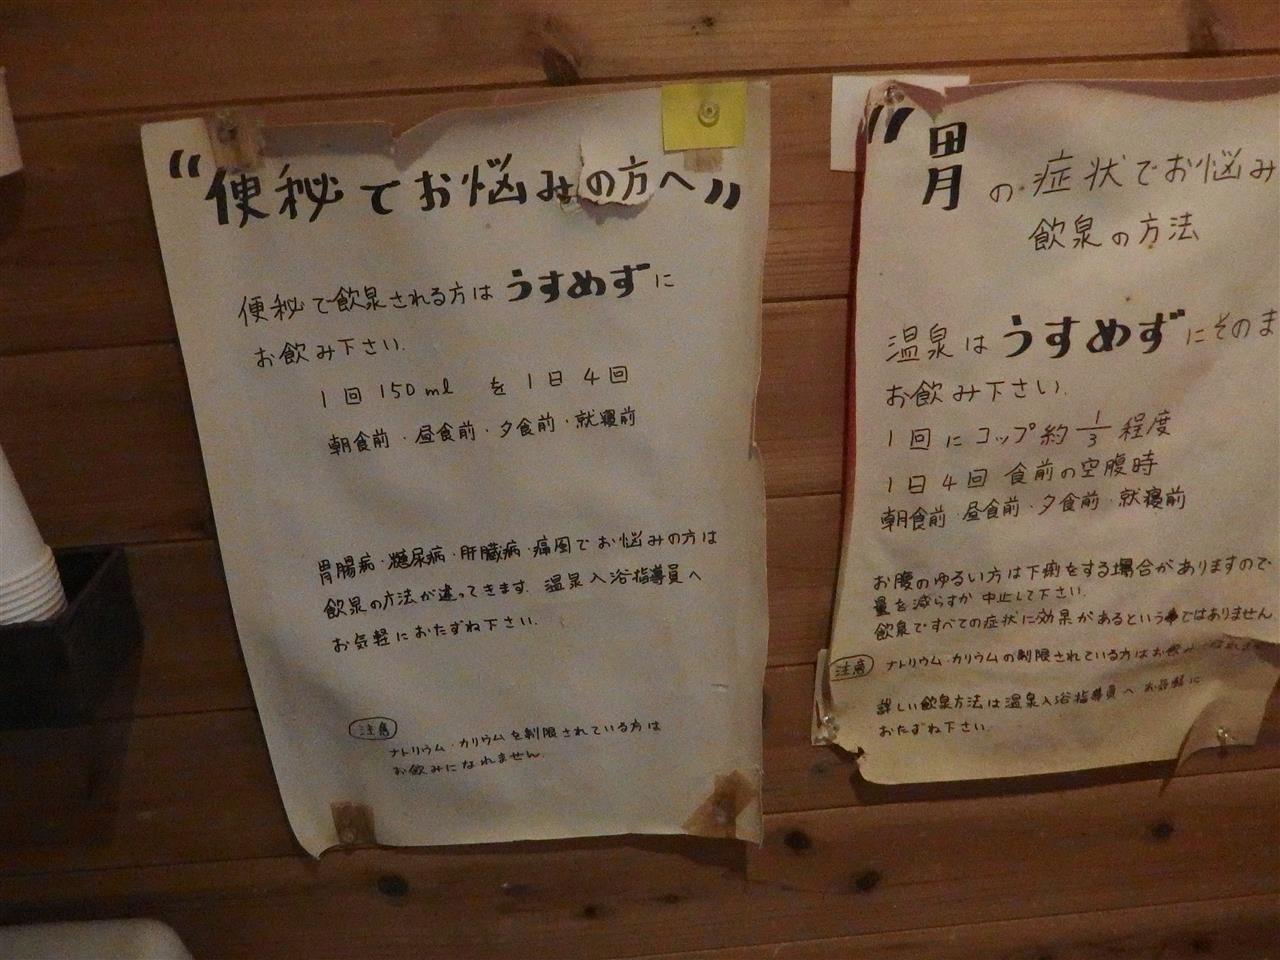 “便秘でお悩みの方へ”
便秘で飲泉される方はうすめずに
お飲み下さい.
1回 150ml を 1日 4回
朝食前・昼食前・夕食前・就寝前
胃腸病・糖尿病・肝臓病・痛風でお悩みの方は
飲泉の方法が違ってきます. 温泉入浴指導員へ
お気軽におたずね下さい.
注意
ナトリウム・カリウムを制限されている方は
お飲みになれません.
“胃の症状でお悩み
飲泉の方法
温泉はうすめずにそのま
お飲み下さい.
1回にコップ約 1/3 程度
1日 4回 食前の空腹時
朝食前・昼食前・夕食前・就寝前
お腹のゆるい方は下痢をする場合がありますので
量を減らすか 中止して下さい.
飲泉ですべての症状に効果があるという ではありません
注意 ナトリウム・カリウムの制限されている方はお飲み
詳しい飲泉方法は温泉入浴指導員へ お気軽に
おたずね下さい.